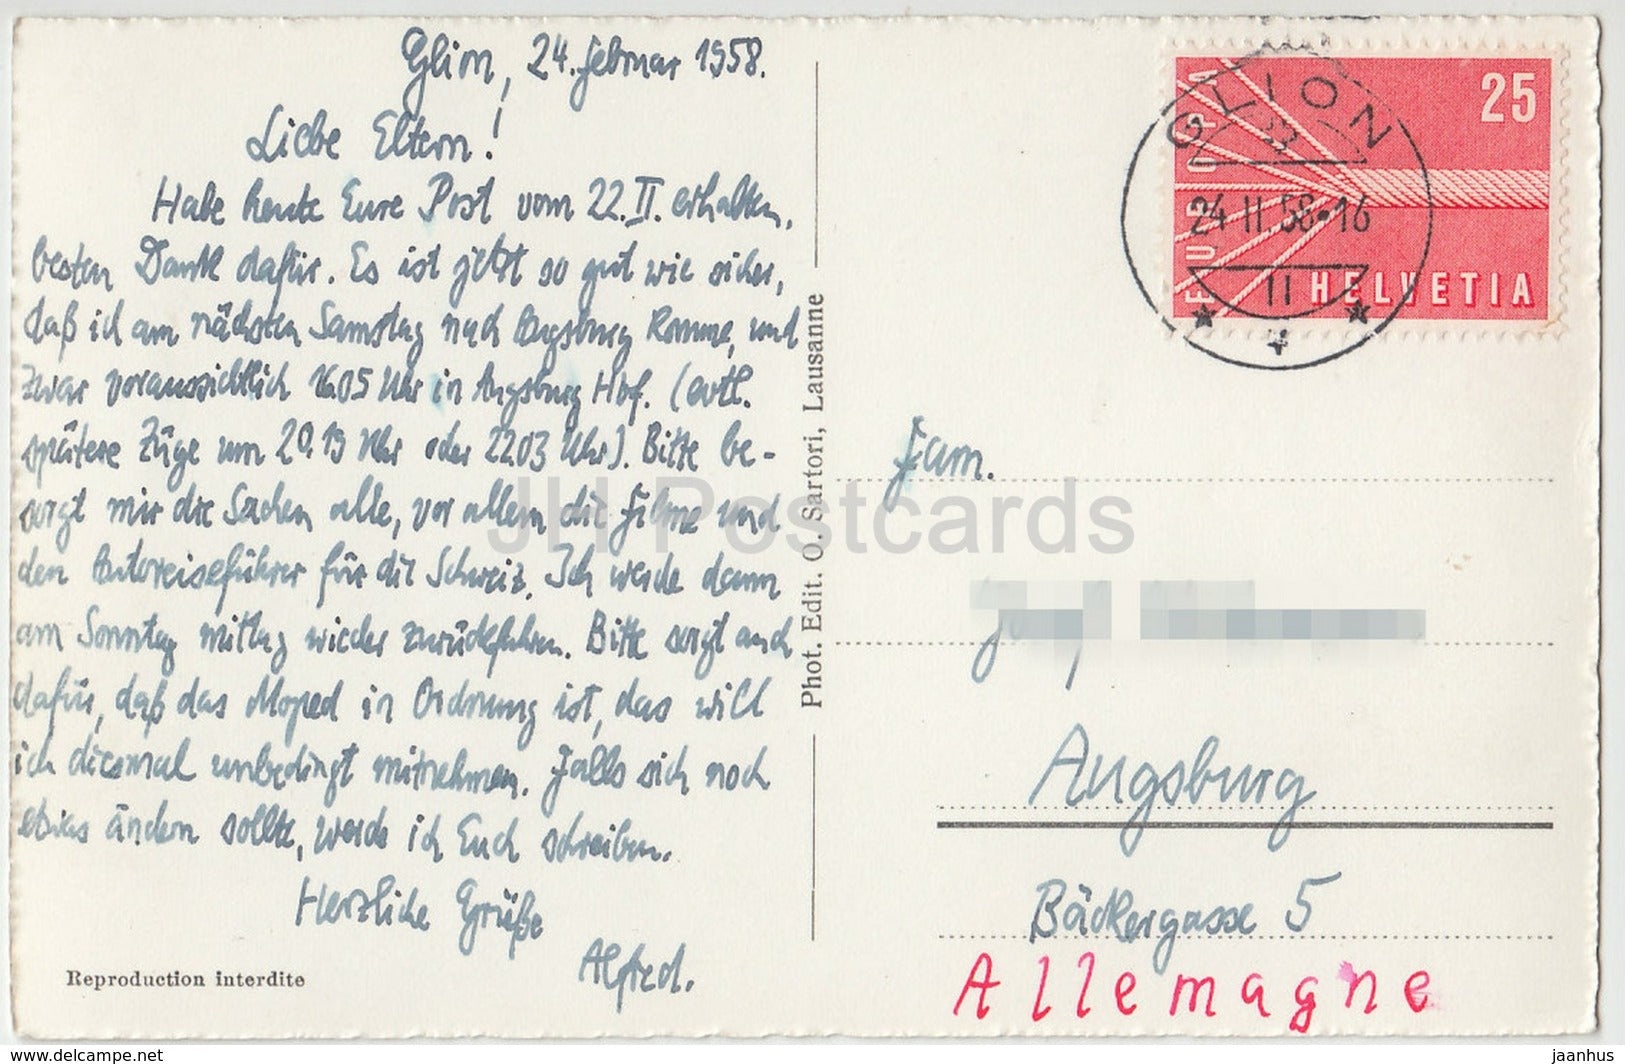 Glion, 24. Februar 1958.
Liebe Eltern!
Habe heute Eure Post vom 22.II. erhalten,
besten Dank dafür. Es ist jetzt so gut wie sicher,
daß ich am nächsten Samstag nach Augsburg komme, und
zwar voraussichtlich 16.05 Uhr in Augsburg Hbf. (evtl.
spätere Züge um 20.19 Uhr oder 22.03 Uhr). Bitte be-
sorgt mir die Sachen alle, vor allem die Filme und
den Autoreiseführer für die Schweiz. Ich werde dann
am Sonntag mittag wieder zurückfahren. Bitte sorgt auch
dafür, daß das Moped in Ordnung ist, das will
ich diesmal unbedingt mitnehmen. Falls sich noch
etwas ändern sollte, werde ich Euch schreiben.
Herzliche Grüße
Alfred.
Reproduction interdite
Phot. Edit. O. Sartori, Lausanne
EUROPA
25
HELVETIA
GLION
24 II 58·16
11
Fam.
Augsburg
Bäckergasse 5
Allemagne
JH Postcards
www.delcampe.net
jaanhus